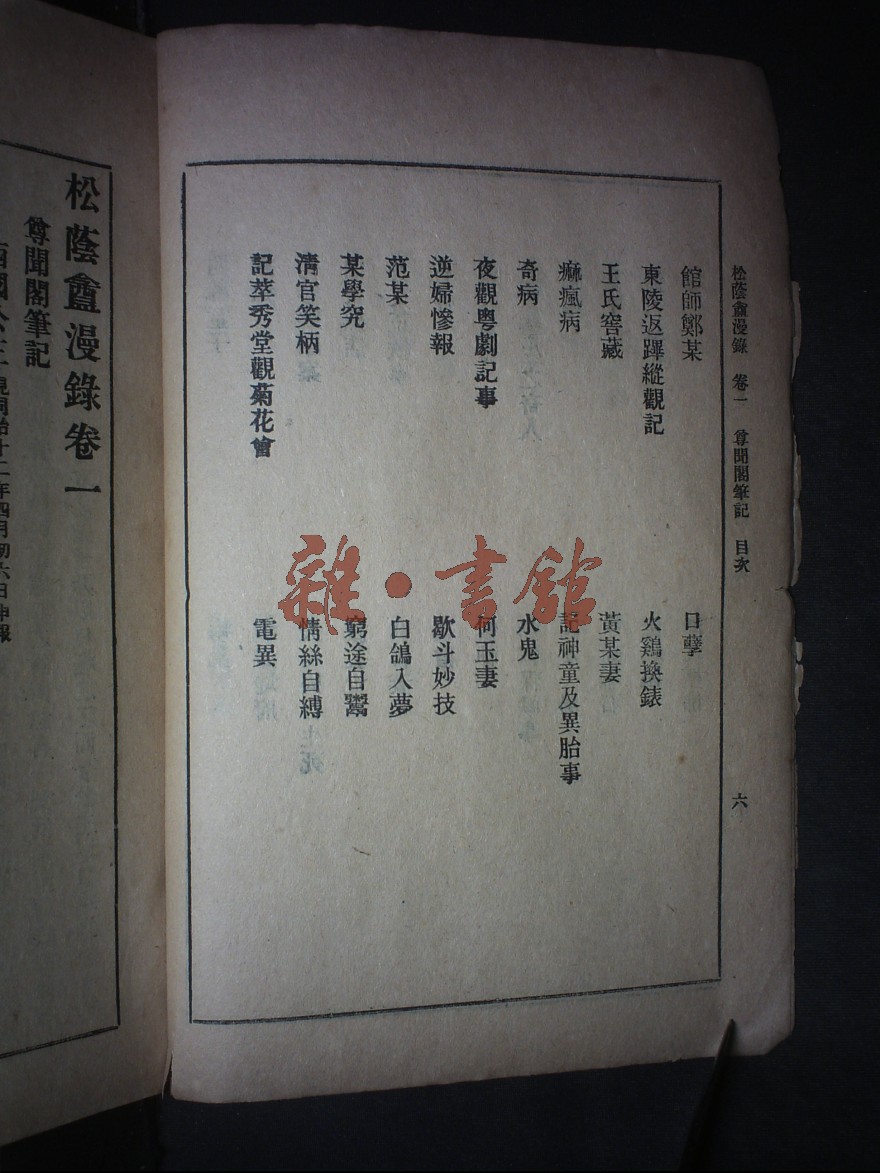 松蔭盦漫錄　卷一　尊聞閣筆記　目次
六
館師鄭某
口孽
東陵返蹕縱觀記
火鷄換錶
王氏窖藏
黃某妻
痲瘋病
記神童及異胎事
奇病
水鬼
夜觀粵劇記事
何玉妻
逆婦慘報
歇斗妙技
范某
白鴿入夢
某學究
窮途自鬻
清官笑柄
情絲自縛
記萃秀堂觀菊花會
電異
雜・書館
松蔭盦漫錄卷一
尊聞閣筆記
年四月初六日申報